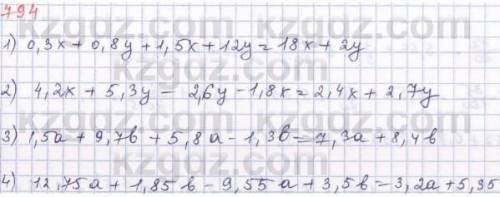 794
1) 0,3x + 0,8y + 1,5x + 12y = 18x + 2y
2) 4,2x + 5,3y - 2,6y - 1,8x = 2,4x + 2,7y
3) 1,5a + 9,7b + 5,8a - 1,3b = 7,3a + 8,4b
4) 12,75a + 1,85b - 9,55a + 3,5b - 3,2a + 5,35